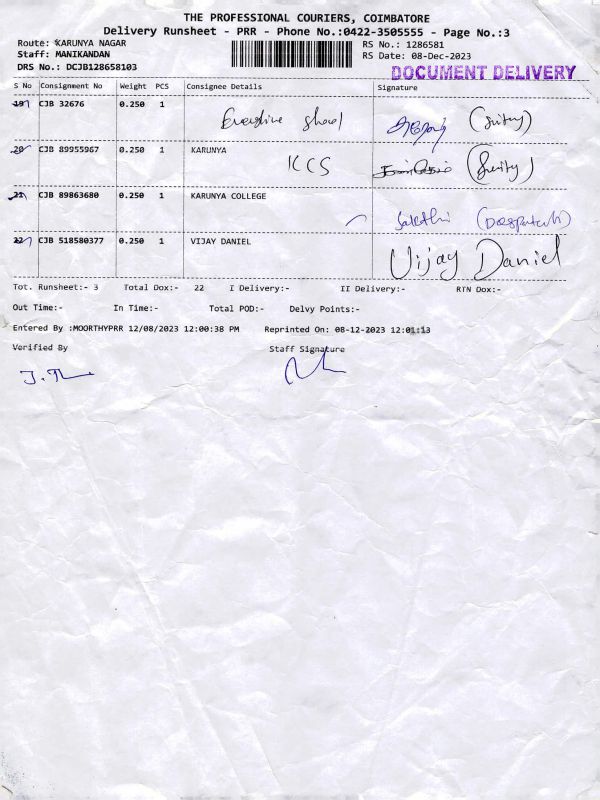 THE PROFESSIONAL COURIERS, COIMBATORE
Delivery Runsheet - PRR - Phone No.:0422-3505555 - Page No.:3
Route: KARUNYA NAGAR RS No.: 1286581
Staff: MANIKANDAN RS Date: 08-Dec-2023
DRS No.: DCJB128658103 DOCUMENT DELIVERY
S No Consignment No Weight PCS Consignee Details Signature
19 CJB 32676 0.250 1
20 CJB 89955967 0.250 1 KARUNYA
KCS
21 CJB 89863680 0.250 1 KARUNYA COLLEGE
Sakthi (Despatch)
22 CJB 518580377 0.250 1 VIJAY DANIEL
Vijay Daniel
Tot. Runsheet:- 3 Total Dox:- 22 I Delivery:- II Delivery:- RTN Dox:-
Out Time:- In Time:- Total POD:- Delvy Points:-
Entered By :MOORTHYPRR 12/08/2023 12:00:38 PM Reprinted On: 08-12-2023 12:01:13
Verified By Staff Signature